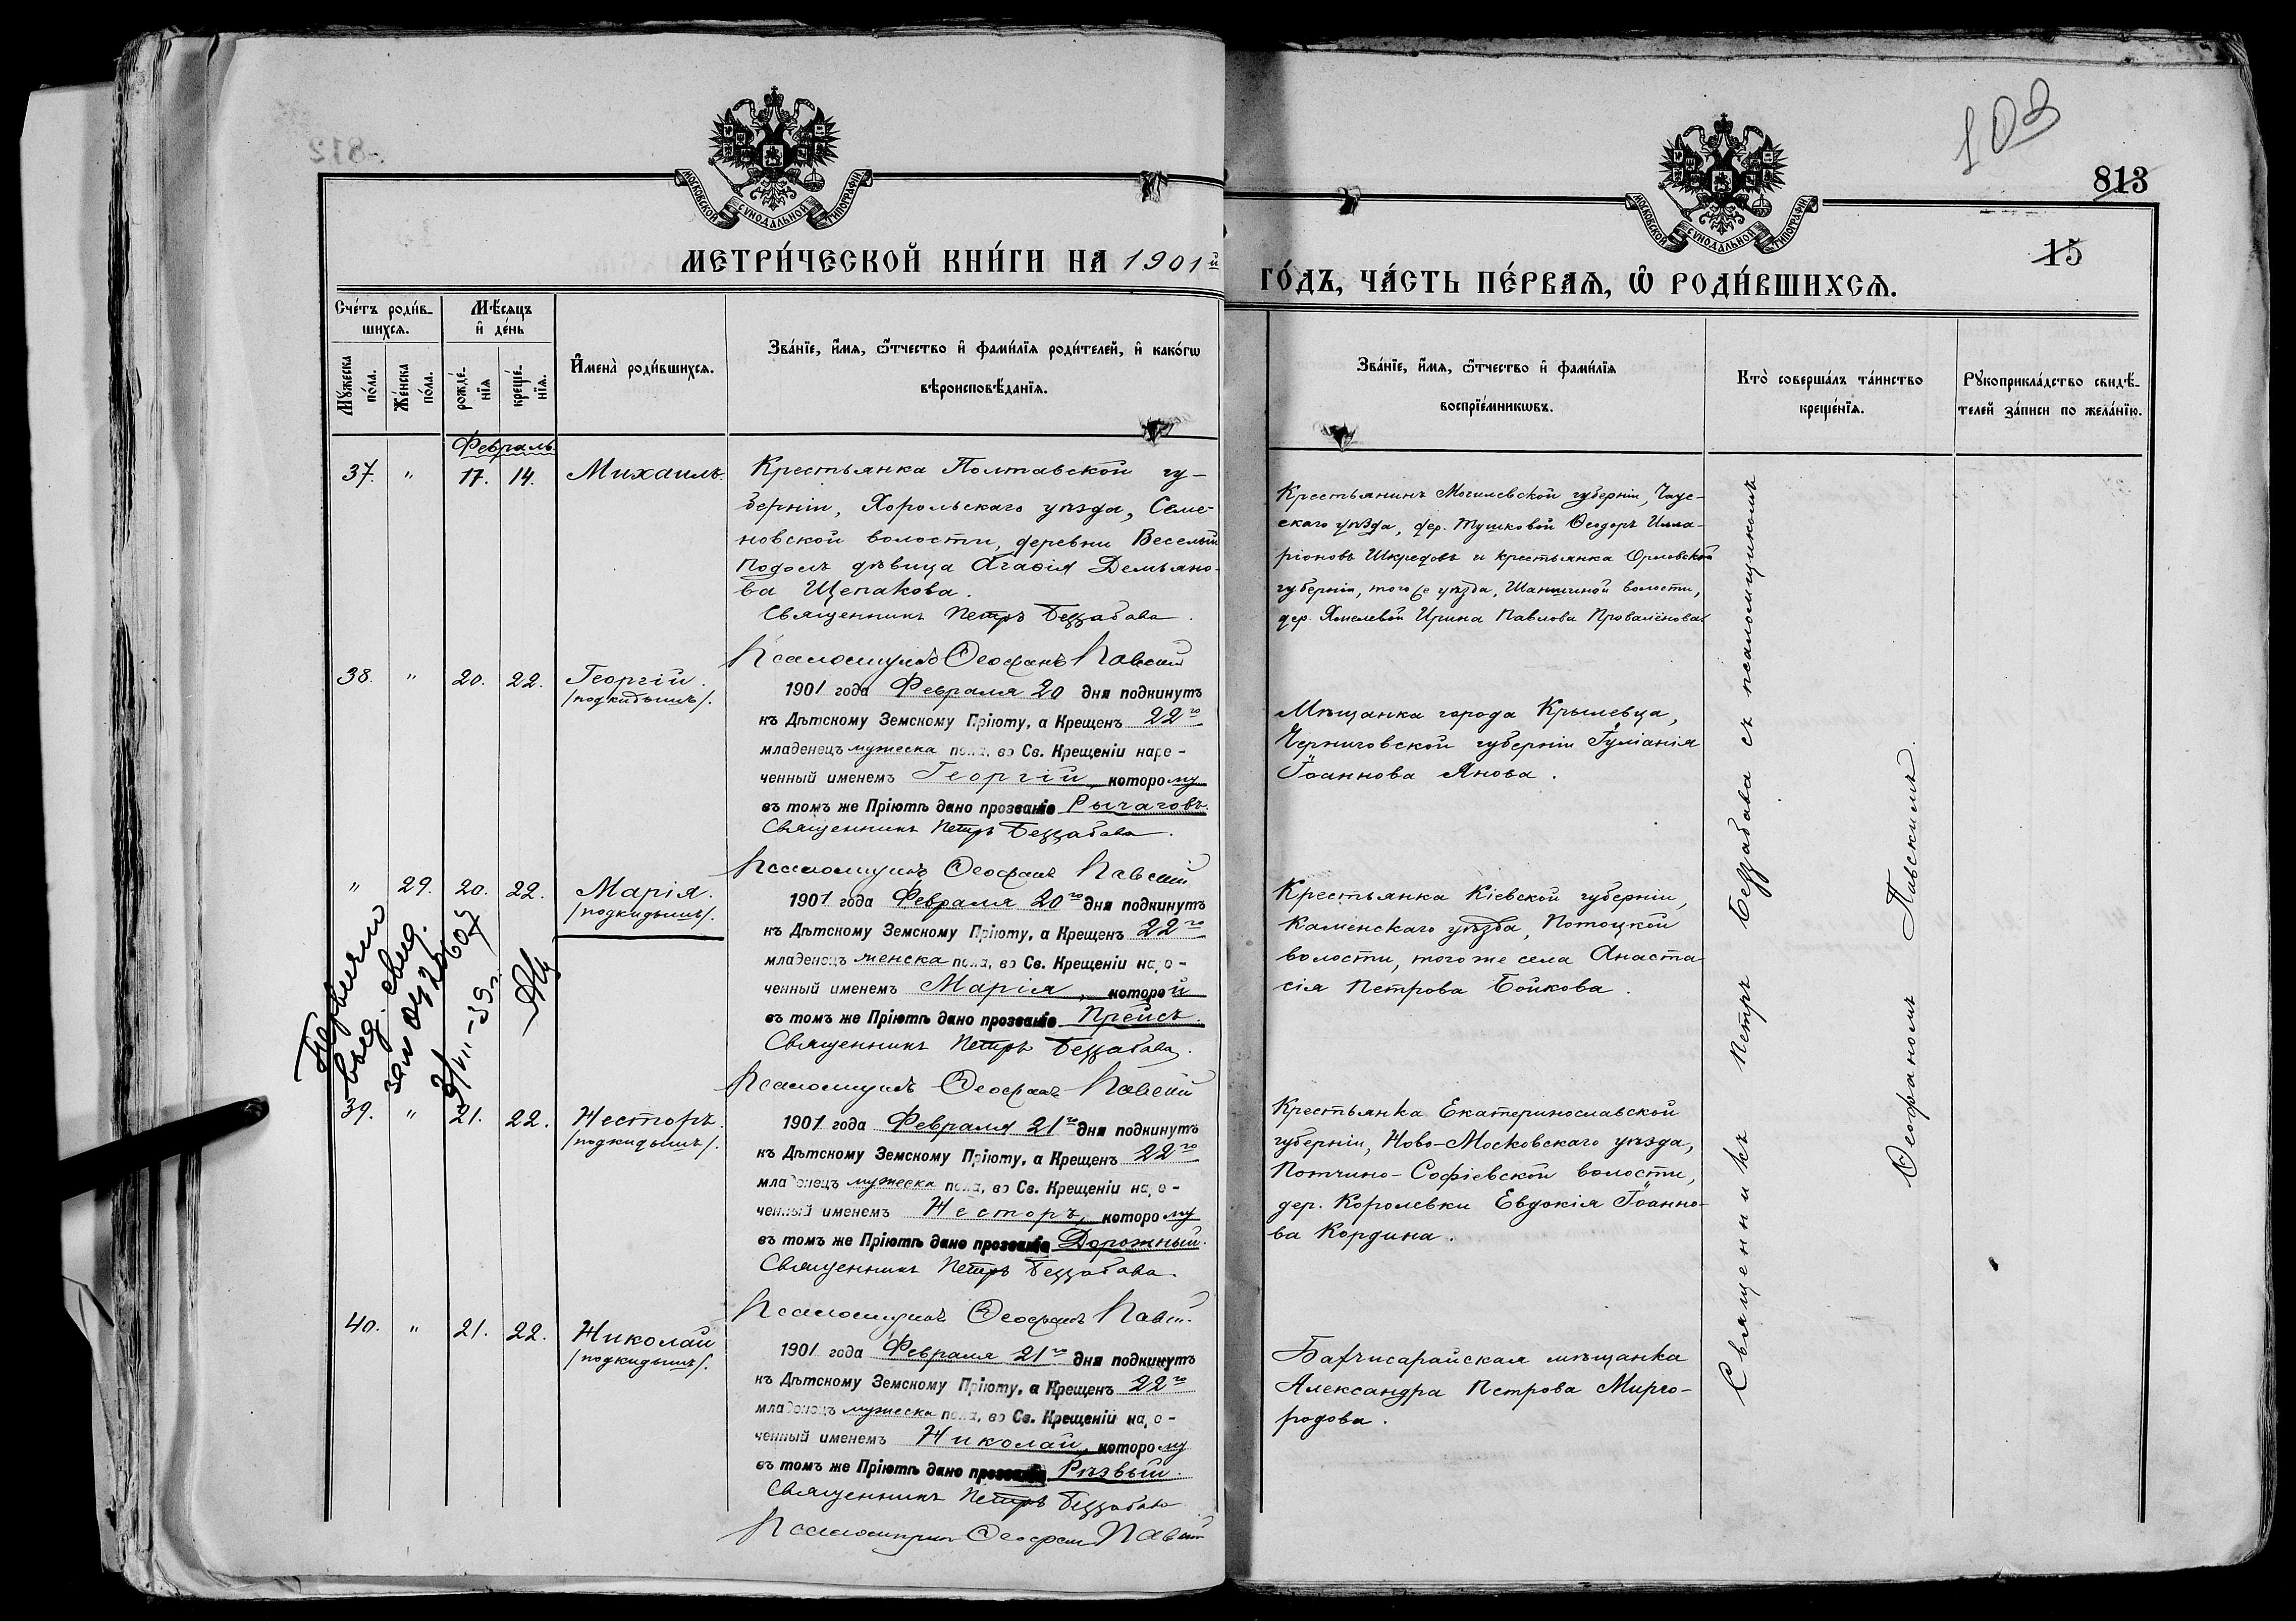 103
813
15
МОСКОВСКОЙ СѴНОДАЛЬНОЙ ТИПОГРАФІИ
МОСКОВСКОЙ СѴНОДАЛЬНОЙ ТИПОГРАФІИ
МЕТРИ́ЧЕСКОЙ КНИ́ГИ НА 1901й
ГО́ДЪ, ЧА́СТЬ ПЕ́РВАѦ, Ѽ РОДИ́ВШИХСѦ.
Сче́тъ роди́в-
шихсѧ.
Мѣ́сѧцъ
и҆ де́нь
Мꙋ́жеска по́ла.
Же́нска по́ла.
рожде́-
нїѧ
креще́-
нїѧ.
И҆мена̀ роди́вшихсѧ.
Зва́нїе, и҆́мѧ, ѻ҆́тчество и҆ фами́лїѧ роди́телей, и҆ како́гѡ
вѣроисповѣ́данїѧ.
Зва́нїе, и҆́мѧ, ѻ҆́тчество и҆ фами́лїѧ
воспрїе́мникѡвъ.
Кто̀ соверша́лъ та́инство
креще́нїѧ.
Рꙋкоприкла́дство свидѣ́-
телей за́писи по жела́нїю.
Февраль.
37. " 17. 14. Михаилъ.
Крестьянка Полтавской гу-
берніи, Хорольскаго уѣзда, Семе-
новской волости, деревни Веселый
Подолъ дѣвица Агафія Демьяно-
ва Щепакова.
Священникъ Петръ Беззабава.
Псаломщикъ Ѳеофанъ Павскій
Крестьянинъ Могилевской губерніи, Чаус-
скаго уѣзда, дер. Тушковой Ѳеодоръ Илла-
ріоновъ Шкредовъ и крестьянка Орловской
губерніи, того же уѣзда, волости,
дер. Хмелевой Ирина Павлова Проваленова.
38. " 20. 22. Георгій.
/подкидышъ/.
1901 года Февраля 20 дня подкинутъ
къ Дѣтскому Земскому Пріюту, а Крещенъ 22го
младенецъ мужеска пола, во Св. Крещеніи наре-
ченный именемъ Георгій, которому
въ томъ же Пріютѣ дано прозваніе Рычаговъ.
Священникъ Петръ Беззабава.
Псаломщикъ Ѳеофанъ Павскій
Мѣщанка города Крылевца,
Черниговской губерніи Іуліанія
Іоаннова Янова.
" 29. 20. 22. Марія.
/подкидышъ/.
1901 года Февраля 20го дня подкинутъ
къ Дѣтскому Земскому Пріюту, а Крещенъ 22го
младенецъ женска пола, во Св. Крещеніи наре-
ченный именемъ Марія, которой
въ томъ же Пріютѣ дано прозваніе Прейсъ.
Священникъ Петръ Беззабава.
Псаломщикъ Ѳеофанъ Павскій
Крестьянка Кіевской губерніи,
Каменскаго уѣзда, Потоцкой
волости, того же села Анаста-
сія Петрова Бойкова.
39. " 21. 22. Несторъ.
/подкидышъ/.
1901 года Февраля 21го дня подкинутъ
къ Дѣтскому Земскому Пріюту, а Крещенъ 22го
младенецъ мужеска пола, во Св. Крещеніи наре-
ченный именемъ Несторъ, которому
въ томъ же Пріютѣ дано прозваніе Дорожный.
Священникъ Петръ Беззабава.
Псаломщикъ Ѳеофанъ Павскій
Крестьянка Екатеринославской
губерніи, Ново-Московскаго уѣзда,
Попчино-Софіевской волости,
дер. Королевки Евдокія Іоанно-
ва Кордина.
40. " 21. 22. Николай
/подкидышъ/.
1901 года Февраля 21го дня подкинутъ
къ Дѣтскому Земскому Пріюту, а Крещенъ 22го
младенецъ мужеска пола, во Св. Крещеніи наре-
ченный именемъ Николай, которому
въ томъ же Пріютѣ дано прозваніе Рѣзвый.
Священникъ Петръ Беззабава
Псаломщикъ Ѳеофанъ Павскій
Бахчисарайская мѣщанка
Александра Петрова Мирго-
родова.
Священникъ Петръ Беззабава съ псаломщикомъ
Ѳеофаномъ Павскимъ.